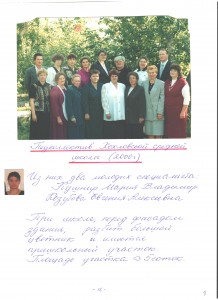 Педколлектив Яхловской средней
школы (2000г)
Из них два молодых специалиста:
Кушнир Мария Владимир
Евгения Алексеевна
При школе, перед фасадом
здания, разбит большой
цветник и имеется
пришкольный участок.
Площадь участка 0,5 соток.